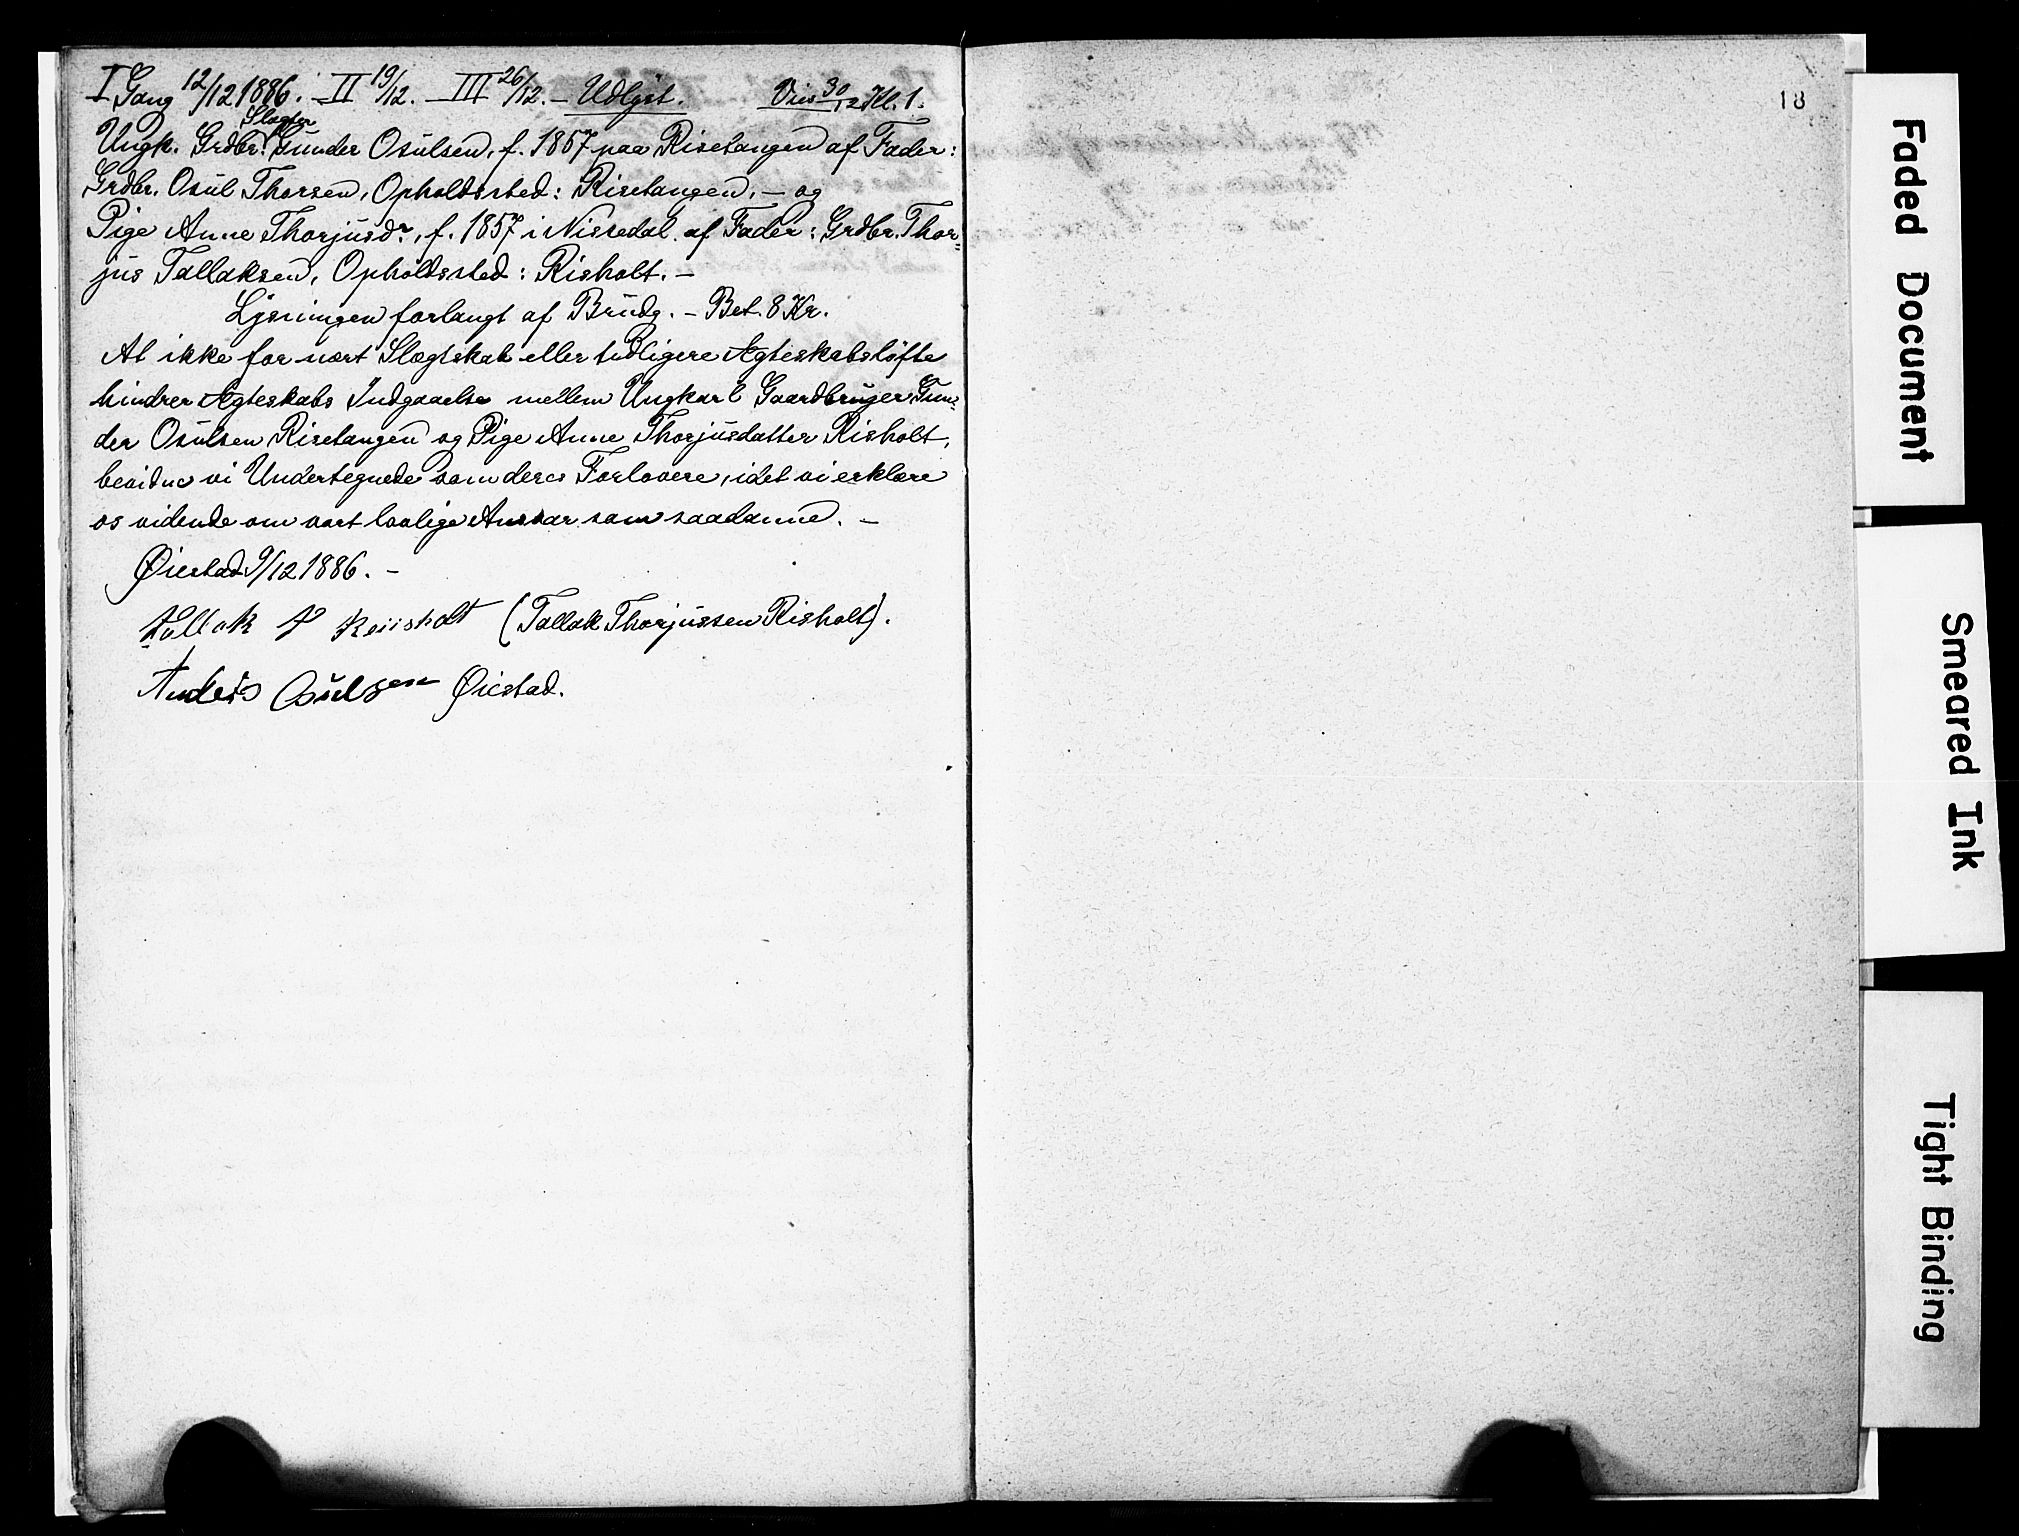 I Gang 12/12 1886. – II 19/12. – III 26/12. – Udlyst. Vies 30/12 Kl. 1.
Slagter
Ungk. Grdbr. Gunder Osulsen, f. 1857 paa Risetangen af Fader:
Grdbr. Osul Thorsen, Opholdssted: Risetangen, – og
Pige Anne Thorjusdr, f. 1857 i Nissedal af Fader: Grdbr. Thor=
jus Tallaksen, Opholdssted: Risholt. –
Lysningen forlangt af Brudg. – Bet. 8 Kr.
At ikke for nært Slægtskab eller tidligere Ægteskabsløfte
hindrer Ægteskabs Indgaaelse mellem Ungkarl Gaardbruger Gun=
der Osulsen Risetangen og Pige Anne Thorjusdatter Risholt,
bevidne vi Undertegnede som deres Forlovere, idet vi erklære
os vidende om vort lovlige Ansvar som saadanne. –
Øiestad 9/12 1886. –
Tallak T Reiisholt (Tallak Thorjussen Risholt).
Anders Osulsen Øiestad.
18
Faded Document
Smeared Ink
Tight Binding